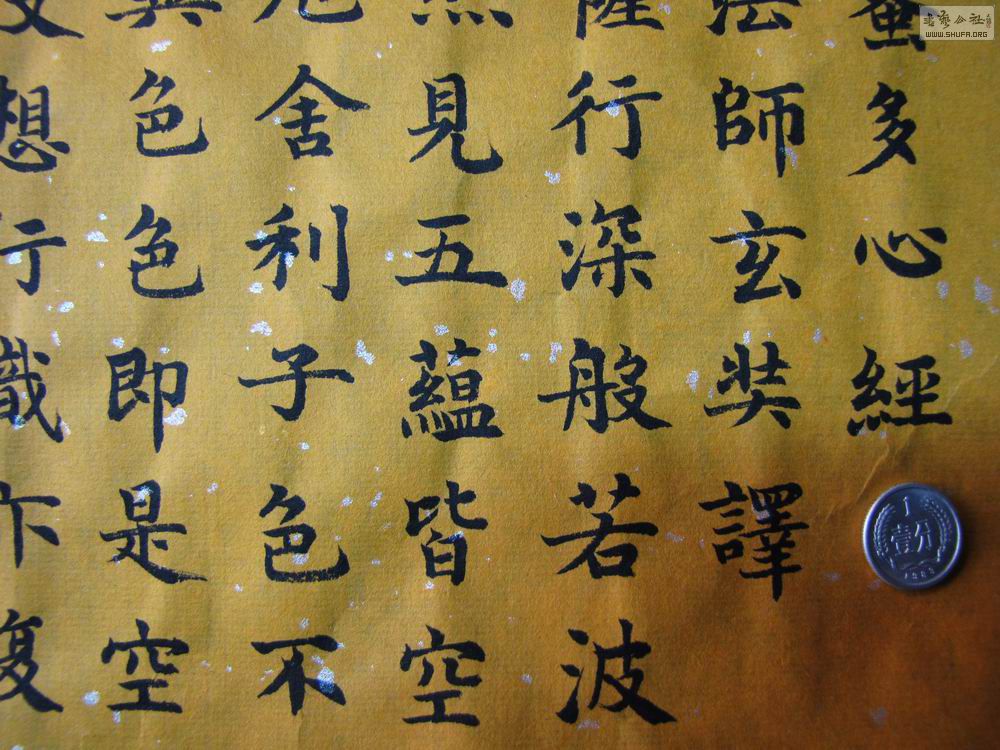 多心經
法師玄奘譯
薩行深般若波
見五蘊皆空
舍利子色不
異色色即是空
想行識
復
書藝公社
WWW.SHUFA.ORG
壹分